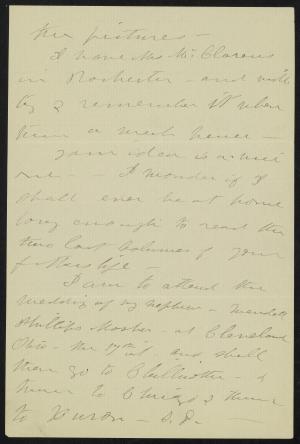 the pictures -
I have Mrs McClarens
in Rochester - and will
try & remember it when
there a week hence -
your idea is a nice
one - - I wonder if I
shall ever be at home
long enough to read the
two last volumes of your
father's life -
I am to attend the
wedding of my nephew - Wendell
Phillips Mosher - at Cleveland
Ohio - the 17th inst. and shall
then go to Chillicothe - &
then to Chicago & then
to Huron - S. D. -